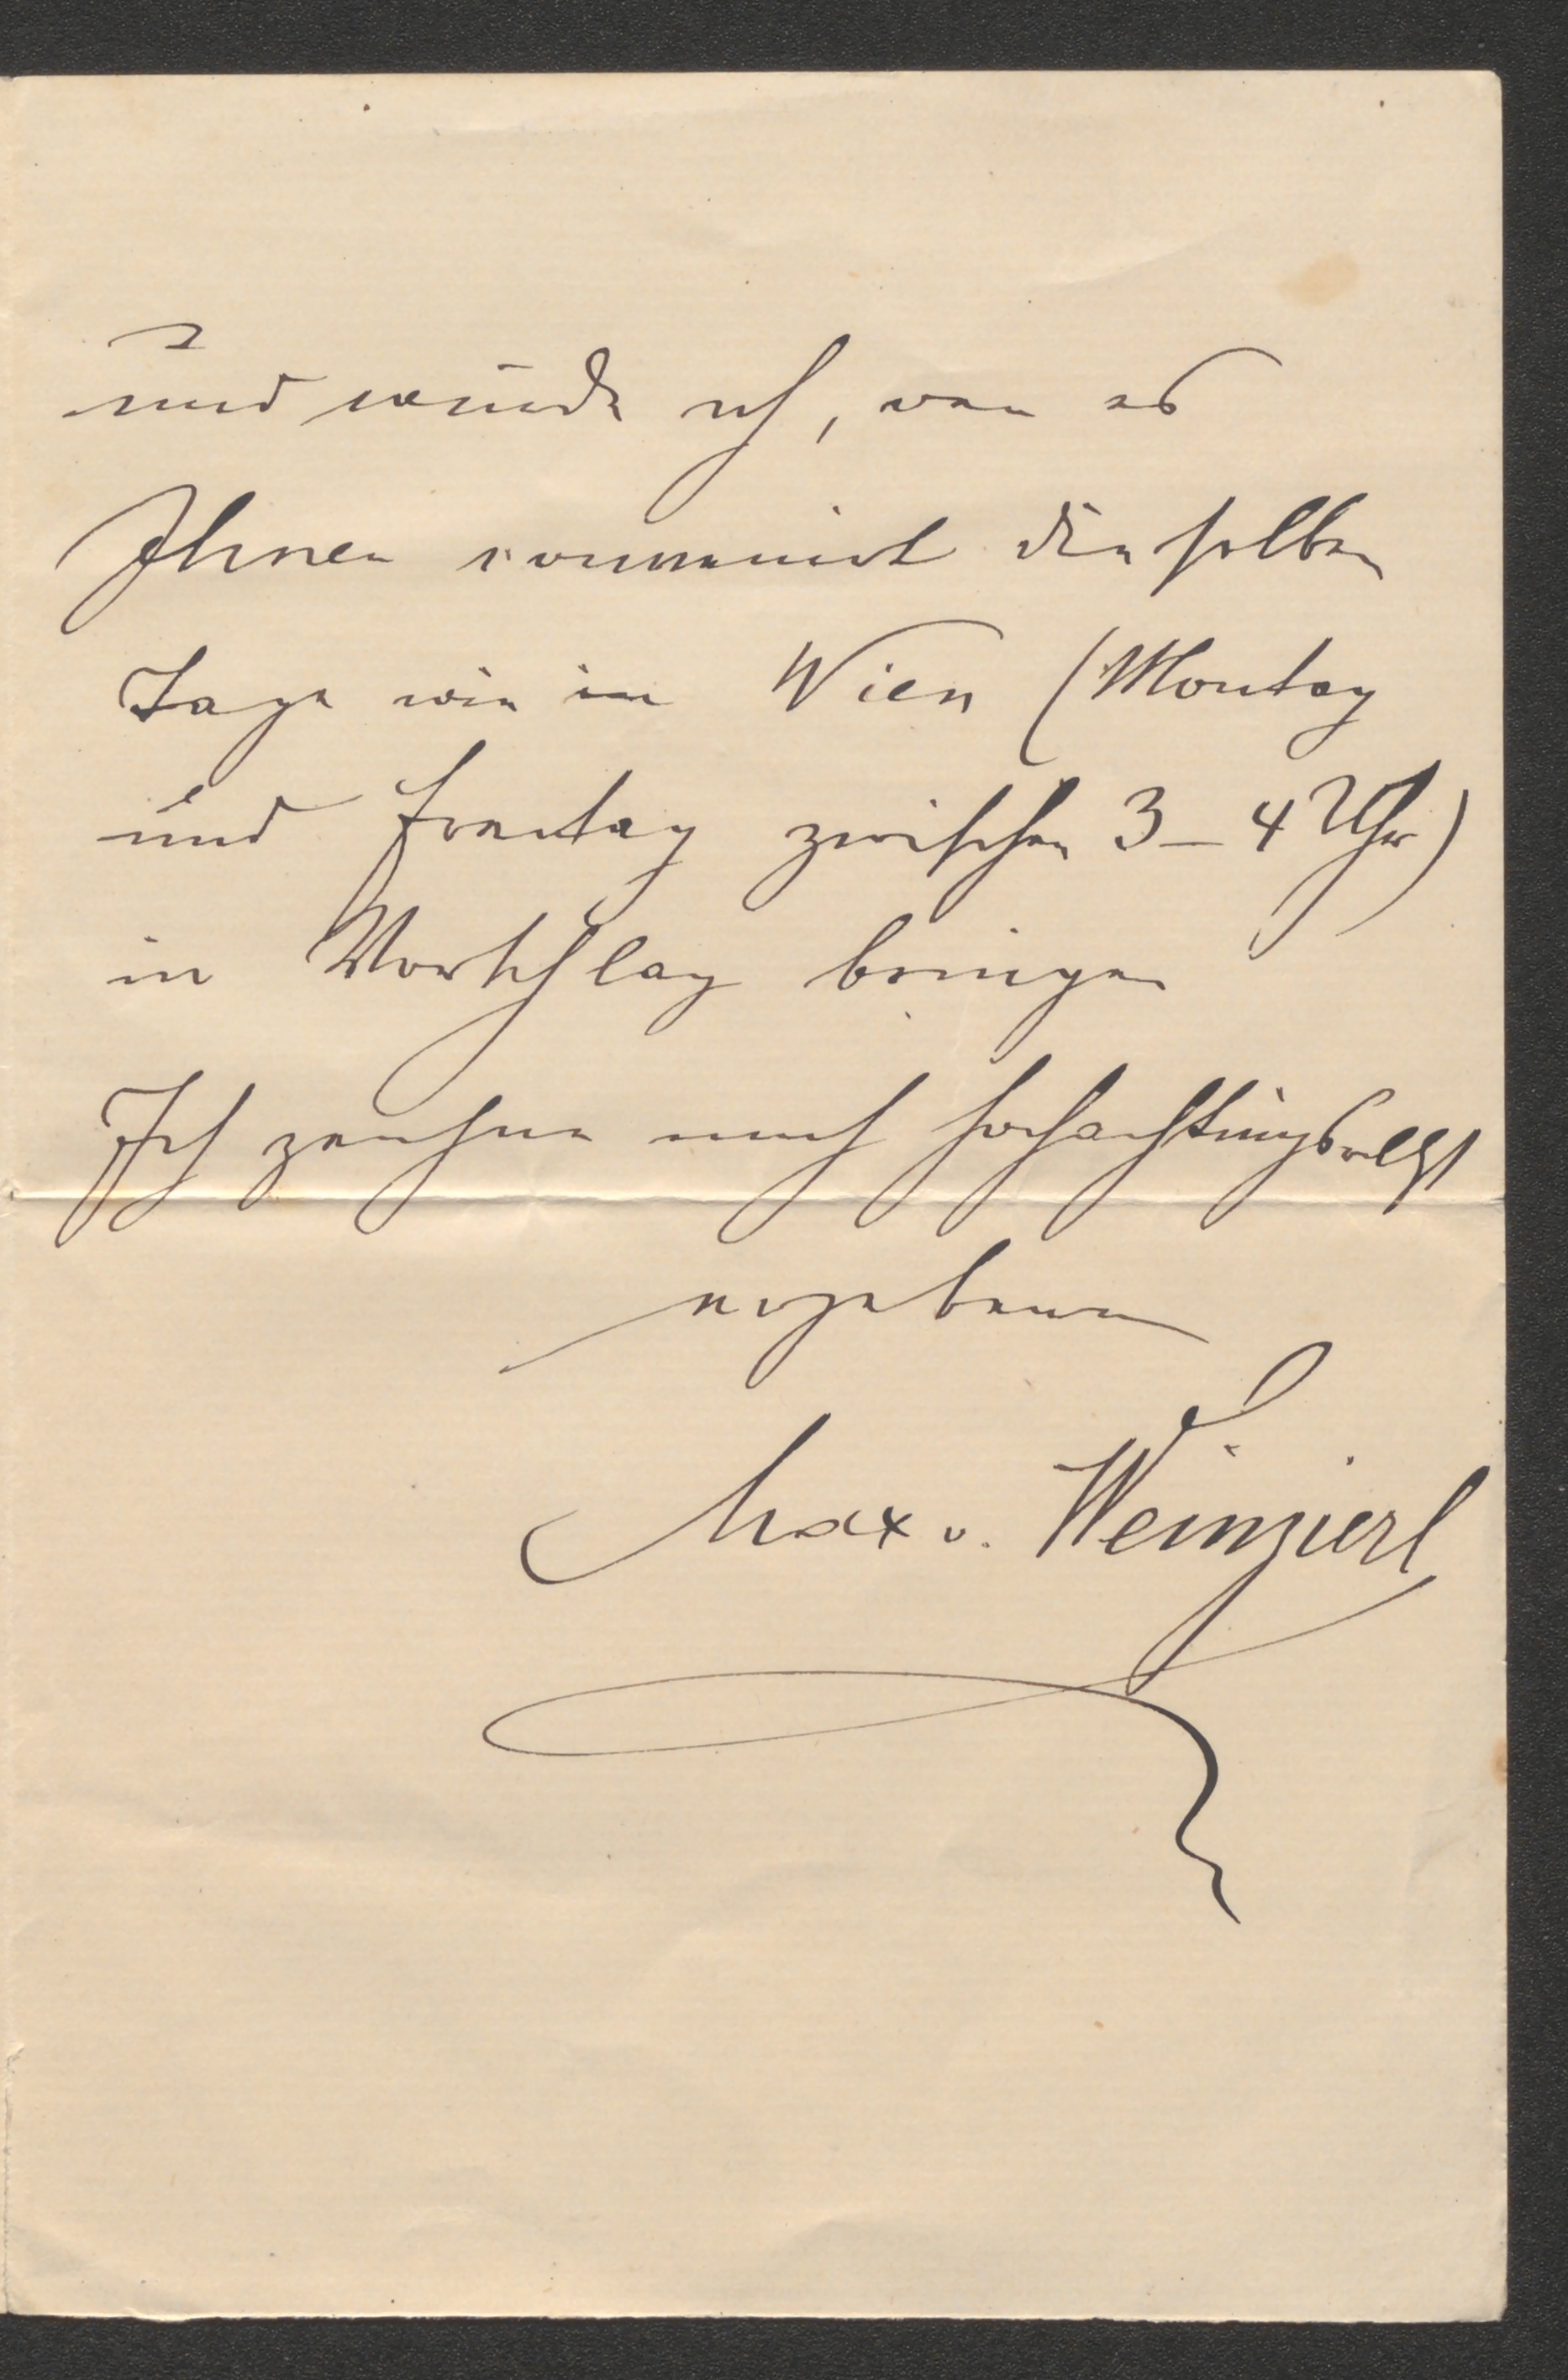 und würde ich, wen es
Ihnen convenirt dieselben
Tage wie in Wien (Montag
und Freitag zwischen 3 – 4 Uhr)
in Vorschlag bringen
Ich zeichne mich hochachtungsvollst
ergebenen
Max v. Weinzierl